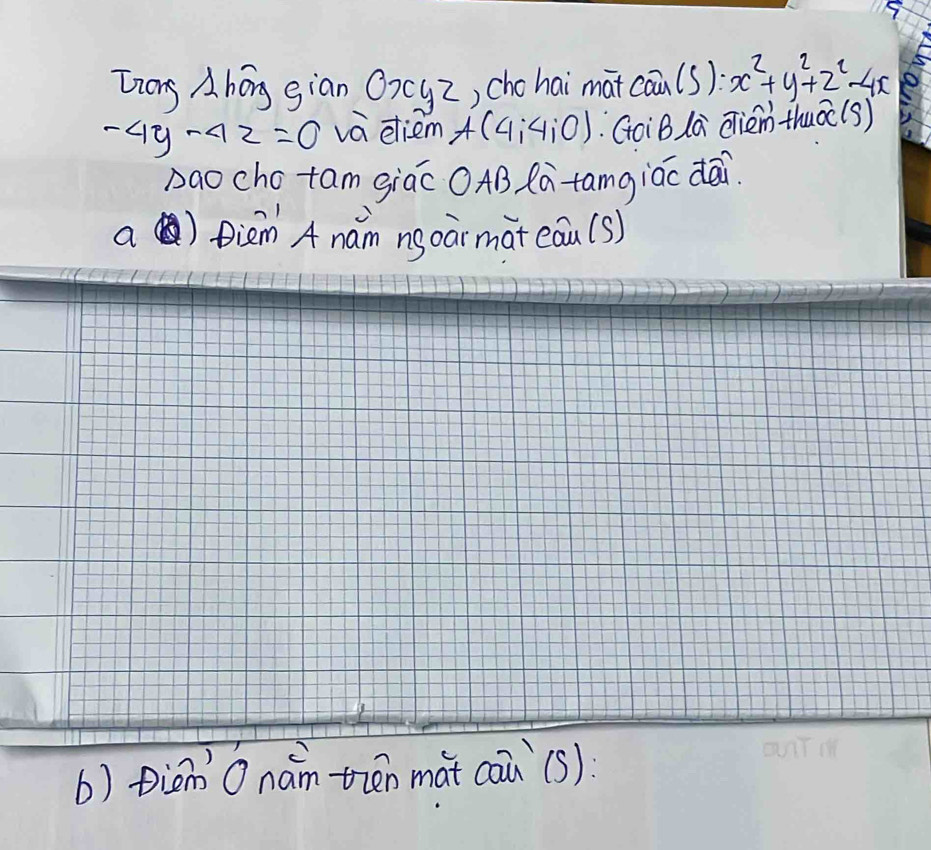 Trong không gian Oxyz, cho hai mặt cầu (S): x²+y²+z²-4x
-4y-4z=0 và điểm A(4;4;0). Gọi B là điểm thuộc (S)
sao cho tam giác OAB là tam giác đều.
a) Điểm A nằm ngoài mặt cầu (S)
b) Điểm O nằm trên mặt cầu (S):